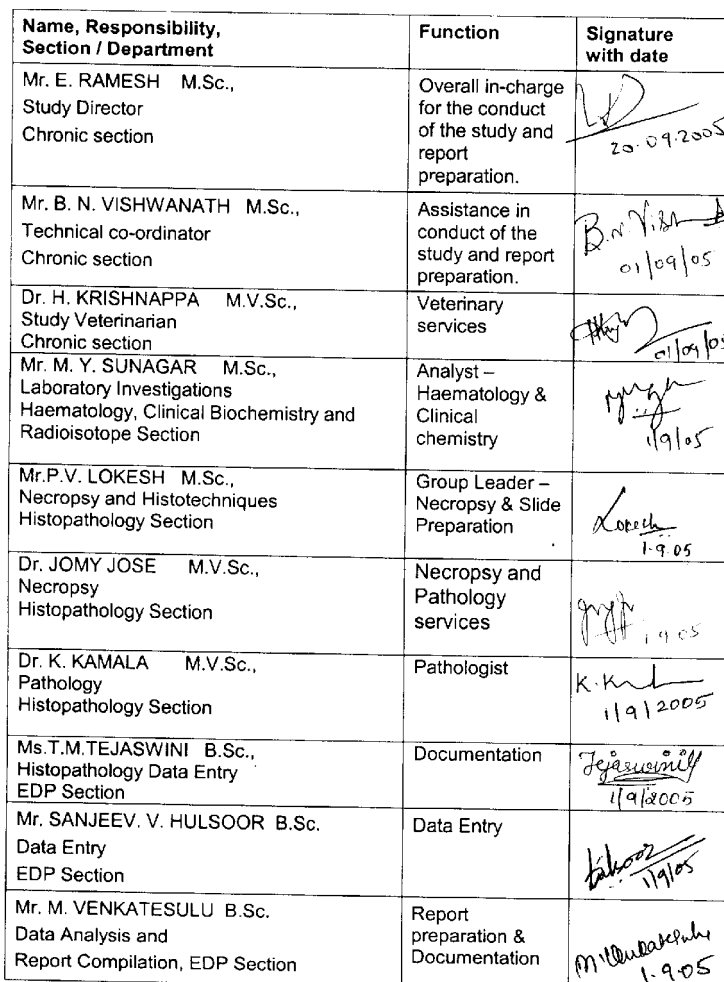 Name, Responsibility,
Section / Department
Function
Signature
with date
Mr. E. RAMESH M.Sc.,
Study Director
Chronic section
Overall in-charge
for the conduct
of the study and
report
preparation.
20.09.2005
Mr. B. N. VISHWANATH M.Sc.,
Technical co-ordinator
Chronic section
Assistance in
conduct of the
study and report
preparation.
B.N.
01/09/05
Dr. H. KRISHNAPPA M.V.Sc.,
Study Veterinarian
Chronic section
Veterinary
services
01/09/05
Mr. M. Y. SUNAGAR M.Sc.,
Laboratory Investigations
Haematology, Clinical Biochemistry and
Radioisotope Section
Analyst –
Haematology &
Clinical
chemistry
1/9/05
Mr.P.V. LOKESH M.Sc.,
Necropsy and Histotechniques
Histopathology Section
Group Leader –
Necropsy & Slide
Preparation
Lokesh
1.9.05
Dr. JOMY JOSE M.V.Sc.,
Necropsy
Histopathology Section
Necropsy and
Pathology
services
1 9 05
Dr. K. KAMALA M.V.Sc.,
Pathology
Histopathology Section
Pathologist
1/9/2005
Ms.T.M.TEJASWINI B.Sc.,
Histopathology Data Entry
EDP Section
Documentation
Tejaswini
1/9/2005
Mr. SANJEEV. V. HULSOOR B.Sc.
Data Entry
EDP Section
Data Entry
1/9/05
Mr. M. VENKATESULU B.Sc.
Data Analysis and
Report Compilation, EDP Section
Report
preparation &
Documentation
M.Venkatesulu
1.9.05